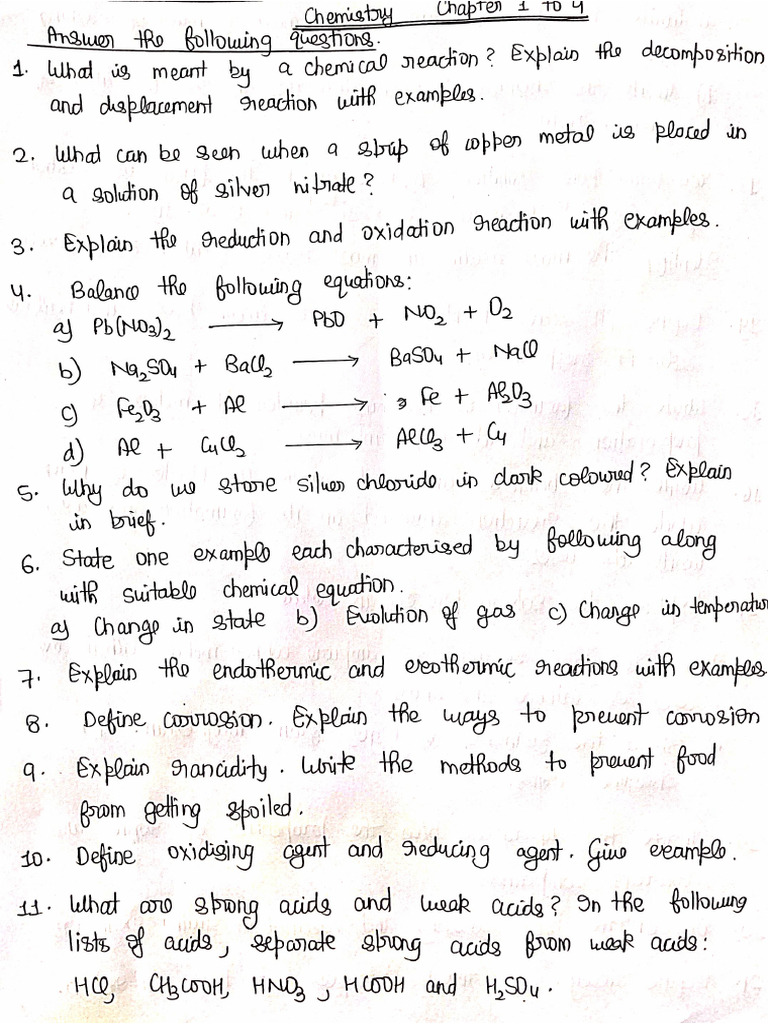 Chemistry Chapter 1 to 4
Answer the following questions.
1. What is meant by a chemical reaction? Explain the decomposition
and displacement reaction with examples.
2. What can be seen when a strip of copper metal is placed in
a solution of silver nitrate?
3. Explain the reduction and oxidation reaction with examples.
4. Balance the following equations:
a) Pb(NO3)2 ⟶ PbO + NO2 + O2
b) Na2SO4 + BaCl2 ⟶ BaSO4 + NaCl
c) Fe2O3 + Al ⟶ Fe + Al2O3
d) Al + CuCl2 ⟶ AlCl3 + Cu
5. Why do we store silver chloride in dark coloured? Explain
in brief.
6. State one example each characterised by following along
with suitable chemical equation.
a) Change in state b) Evolution of gas c) Change in temperatur
7. Explain the endothermic and exothermic reactions with examples
8. Define corrosion. Explain the ways to prevent corrosion
9. Explain rancidity. Write the methods to prevent food
from getting spoiled.
10. Define oxidising agent and reducing agent. Give example.
11. What are strong acids and weak acids? In the following
lists of acids, separate strong acids from weak acids:
HCl, CH3COOH, HNO3, HCOOH and H2SO4.